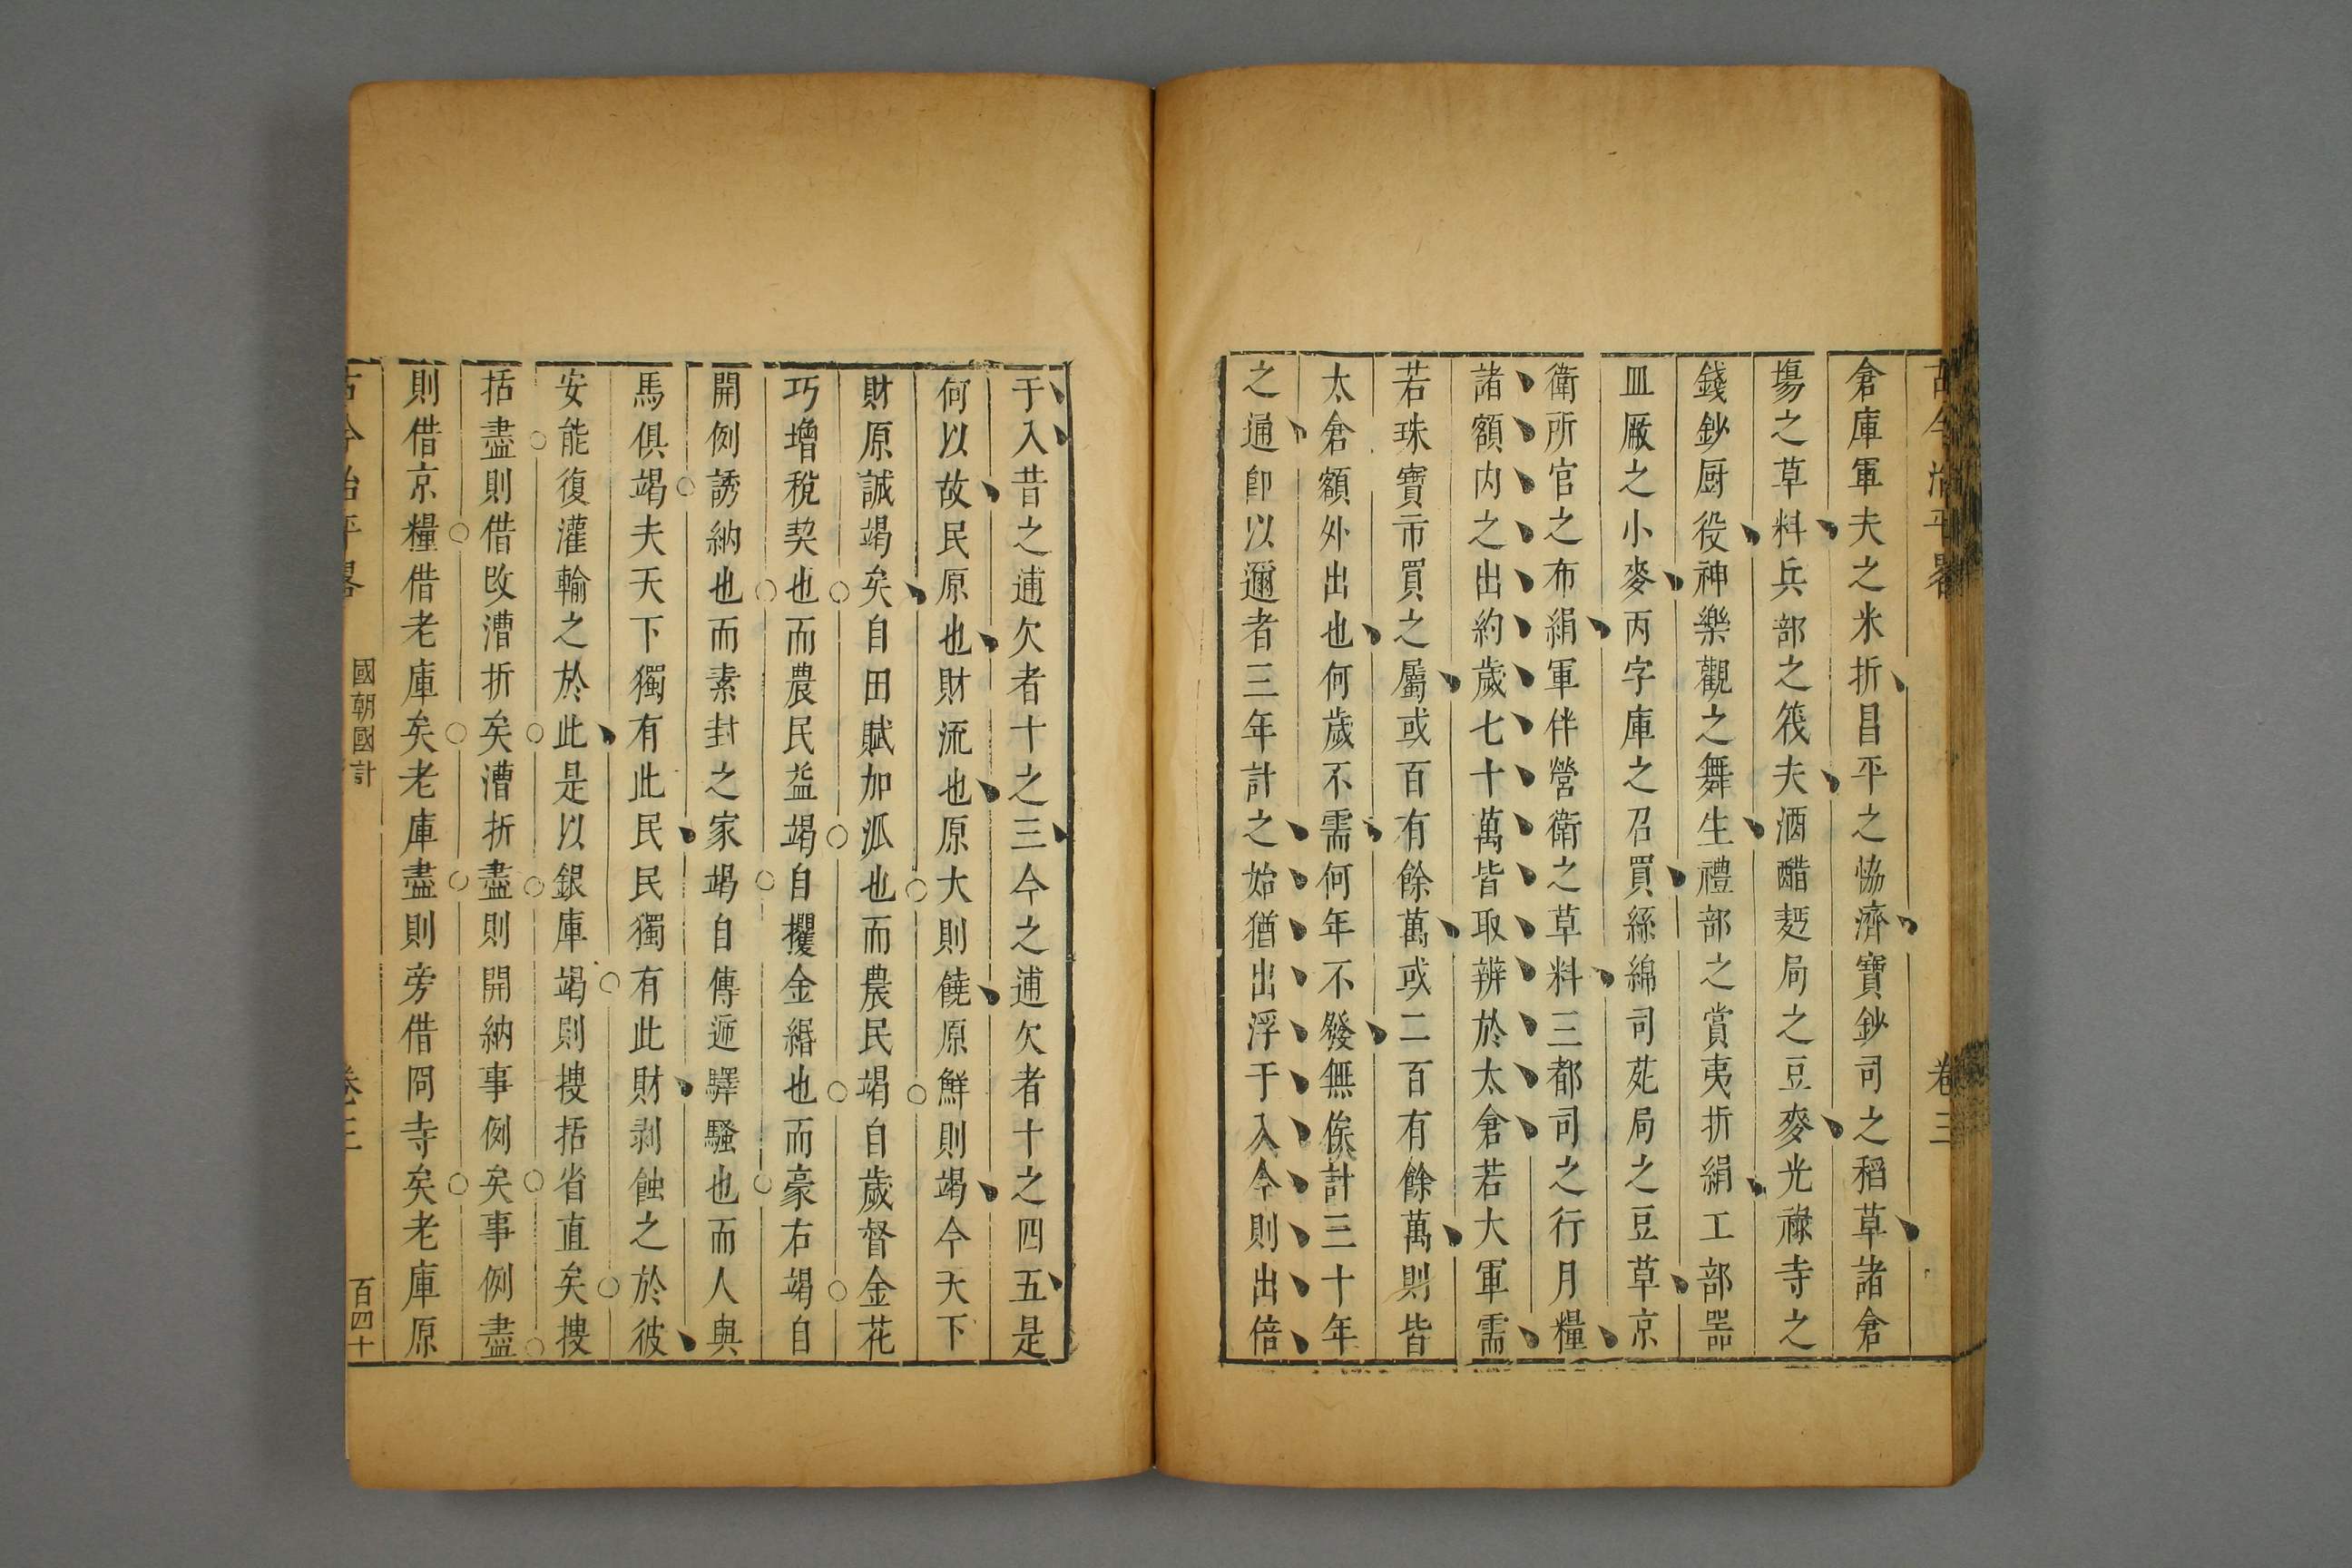 古今治平畧 卷三
倉庫軍夫之米折昌平之恊濟寶鈔司之稻草諸倉
塲之草料兵部之筏夫酒醋麪局之豆麥光祿寺之
錢鈔厨役神樂觀之舞生禮部之賞夷折絹工部器
皿厰之小麥丙字庫之召買絲綿司苑局之豆草京
衛所官之布絹軍伴營衛之草料三都司之行月糧
諸額内之出約歲七十萬皆取辨於太倉若大軍需
若珠寶市買之屬或百有餘萬或二百有餘萬則皆
太倉額外出也何歲不需何年不發無俟計三十年
之通卽以邇者三年計之始猶出浮于入今則出倍
于入昔之逋欠者十之三今之逋欠者十之四五是
何以故民原也財流也原大則饒原鮮則竭今天下
財原誠竭矣自田賦加泒也而農民竭自歲督金花
巧增稅契也而農民益竭自攫金緡也而豪右竭自
開例誘納也而素封之家竭自傳遞驛騷也而人與
馬俱竭夫天下獨有此民民獨有此財剥蝕之於彼
安能復灌輸之於此是以銀庫竭則搜括省直矣搜
括盡則借改漕折矣漕折盡則開納事例矣事例盡
則借京糧借老庫矣老庫盡則旁借冏寺矣老庫原
古今治平畧 國朝國計 卷三 百四十